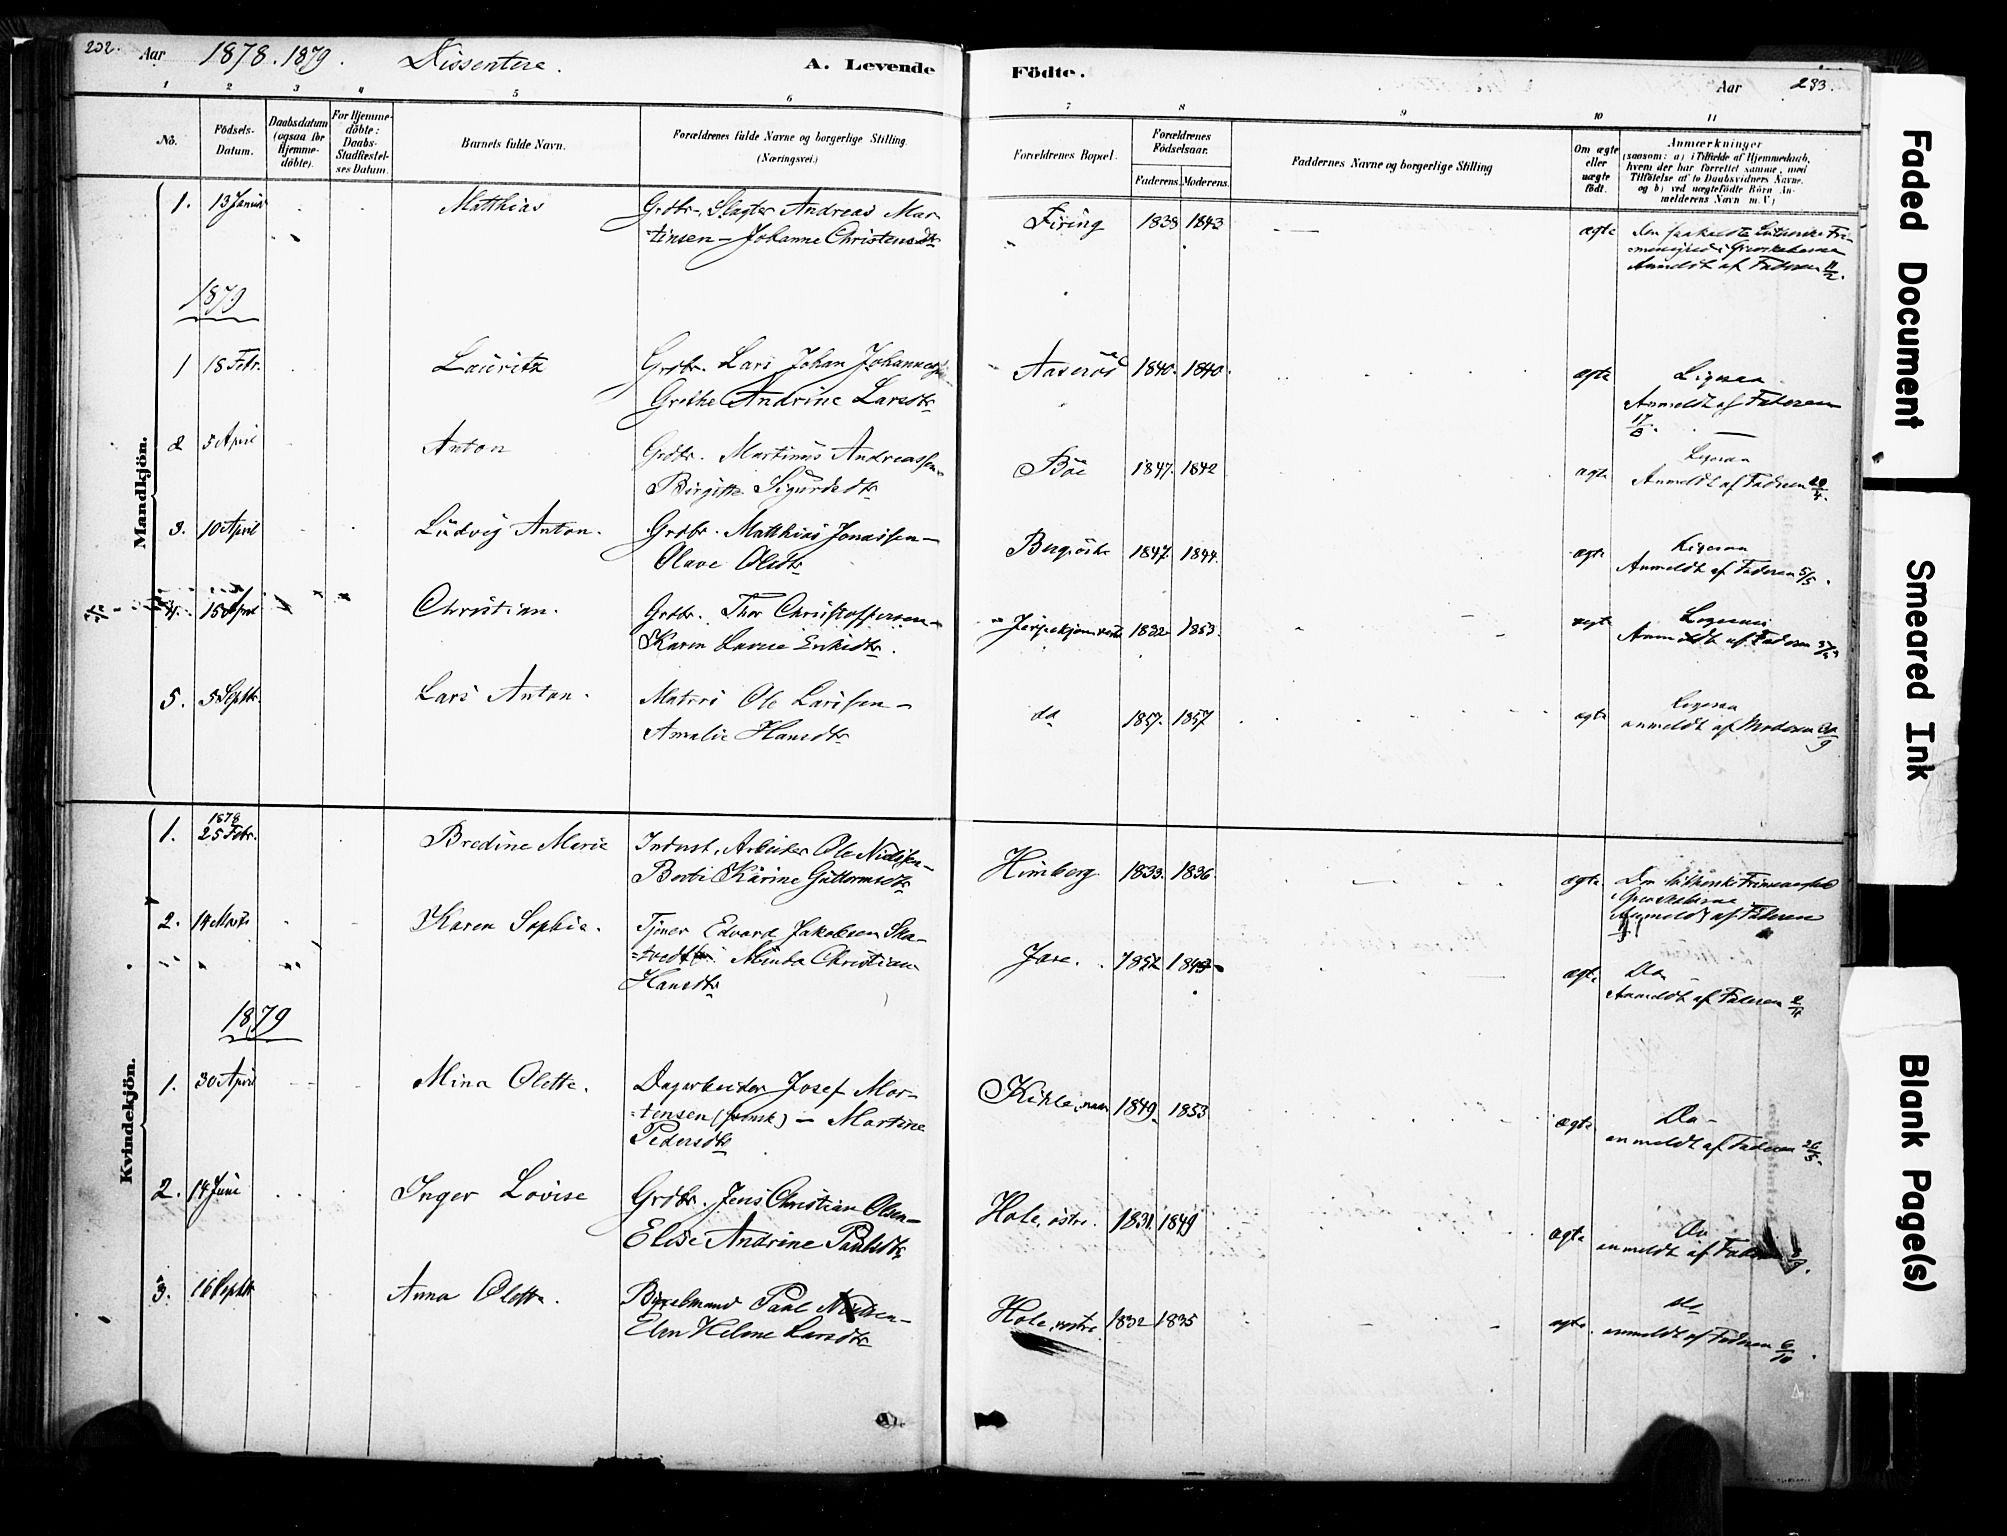 202.
Aar 1878. 1879. Dissentere. A. Levende Födte. Aar 233.
1 2 3 4 5 6 7 8 9 10 11
No.
Födsels-Datum.
Daabsdatum (ogsaa for Hjemme-döbte).
For Hjemme-döbte: Daabs-Stadfæstel-ses Datum.
Barnets fulde Navn.
Forældrenes fulde Navne og borgerlige Stilling (Næringsvei.)
Forældrenes Bopæl.
Forældrenes Födselsaar.
Faderens. Moderens.
Faddernes Navne og borgerlige Stilling
Om ægte eller uægte födt.
Anmærkninger
(saasom: a) i Tilfælde af Hjemmedaab, hvem der har forrettet samme, med Tilföielse af to Daabsvidners Navne, og b) ved uægtefödte Börn Anmelderens Navn m. V.)
Mandkjön.
1. 13 Januar Matthias Grdbr. Slagter Andreas Mar- Firing 1838 1843 ægte
tinsen - Johanne Christensdtr
Anmeldt af Faderen 11/2.
1879
1 18 Febr. Lauritz Grdbr. Lars Johan Johannes 1840. 1840. ægte Ligesaa
Grethe Andrine Larsdtr Anmeldt af Faderen
17/3.
2 5 April Anton Grdbr. Martinus Andreassen - Böe 1847. 1842 ægte Ligesaa
Birgitte Sigurdsdtr Anmeldt af Faderen 20/4.
3. 10 April Ludvig Anton. Grdbr. Matthias Jonassen - Berg 1847. 1844. ægte Ligesaa
Olave Olsdtr Anmeldt af Faderen 5/5.
4. 15 April Christian. Grdbr. Thor Christoffersen - 1832 1853. ægte Ligesaa
Karen Lavise Eriksdtr. Anmeldt af Faderen
5. 5 Septbr. Lars Anton. Matros Ole Larssen - do 1857. 1857 ægte Ligesaa
Amalie Hansdtr anmeldt af Moderen
Kvindekjön.
1878
1. 25 Febr. Bredine Marie Indust. Arbeider Ole Nielsen - Himberg. 1833. 1836. ægte
Karine Guttormsdtr
Anmeldt af Faderen
2. 14 Marts Karen Sophie. Tjener Edvard Jakobsen Jare. 1852 ægte Do
Christian
Hansdtr Anmeldt af Faderen
1879
1. 30 April Mina Olette. Dagarbeider Josef Mor- 1849. 1853 ægte Do -
=tensen - Martine anmeldt af Faderen 26/5.
Pedersdtr
2. 14 Juni Inger Lovise Grdbr. Jens Christian Olsen - Hole, östre. 1831. 1849 ægte Do
Elise Andrine Paulsdtr anmeldt af Faderen
3. 16 Septbr Anna Olette. Paul Nielsen - Hole, vestre 1832 1835 ægte. do
Elen Helene Larsdtr anmeldt af Faderen 6/10.
Faded Document
Smeared Ink
Blank Page(s)